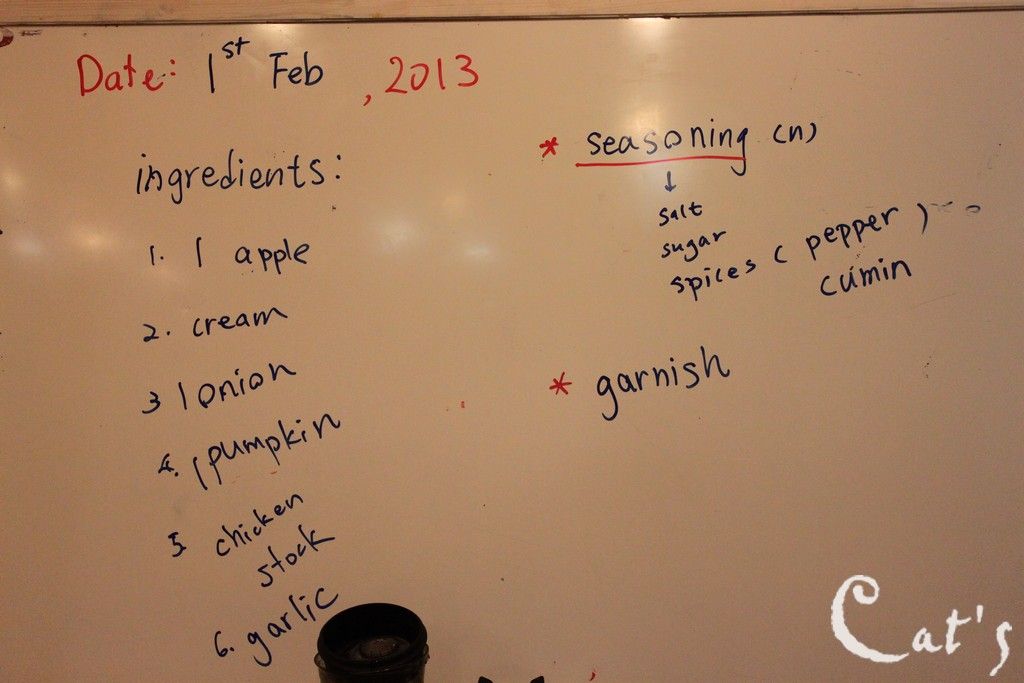 Date: 1st Feb , 2013
ingredients:
1. 1 apple
2. cream
3 1 onion
4. 1 pumpkin
5. chicken
stock
6. garlic
* seasoning (n)
↓
salt
sugar
spices ( pepper )
cumin
* garnish
Cat's